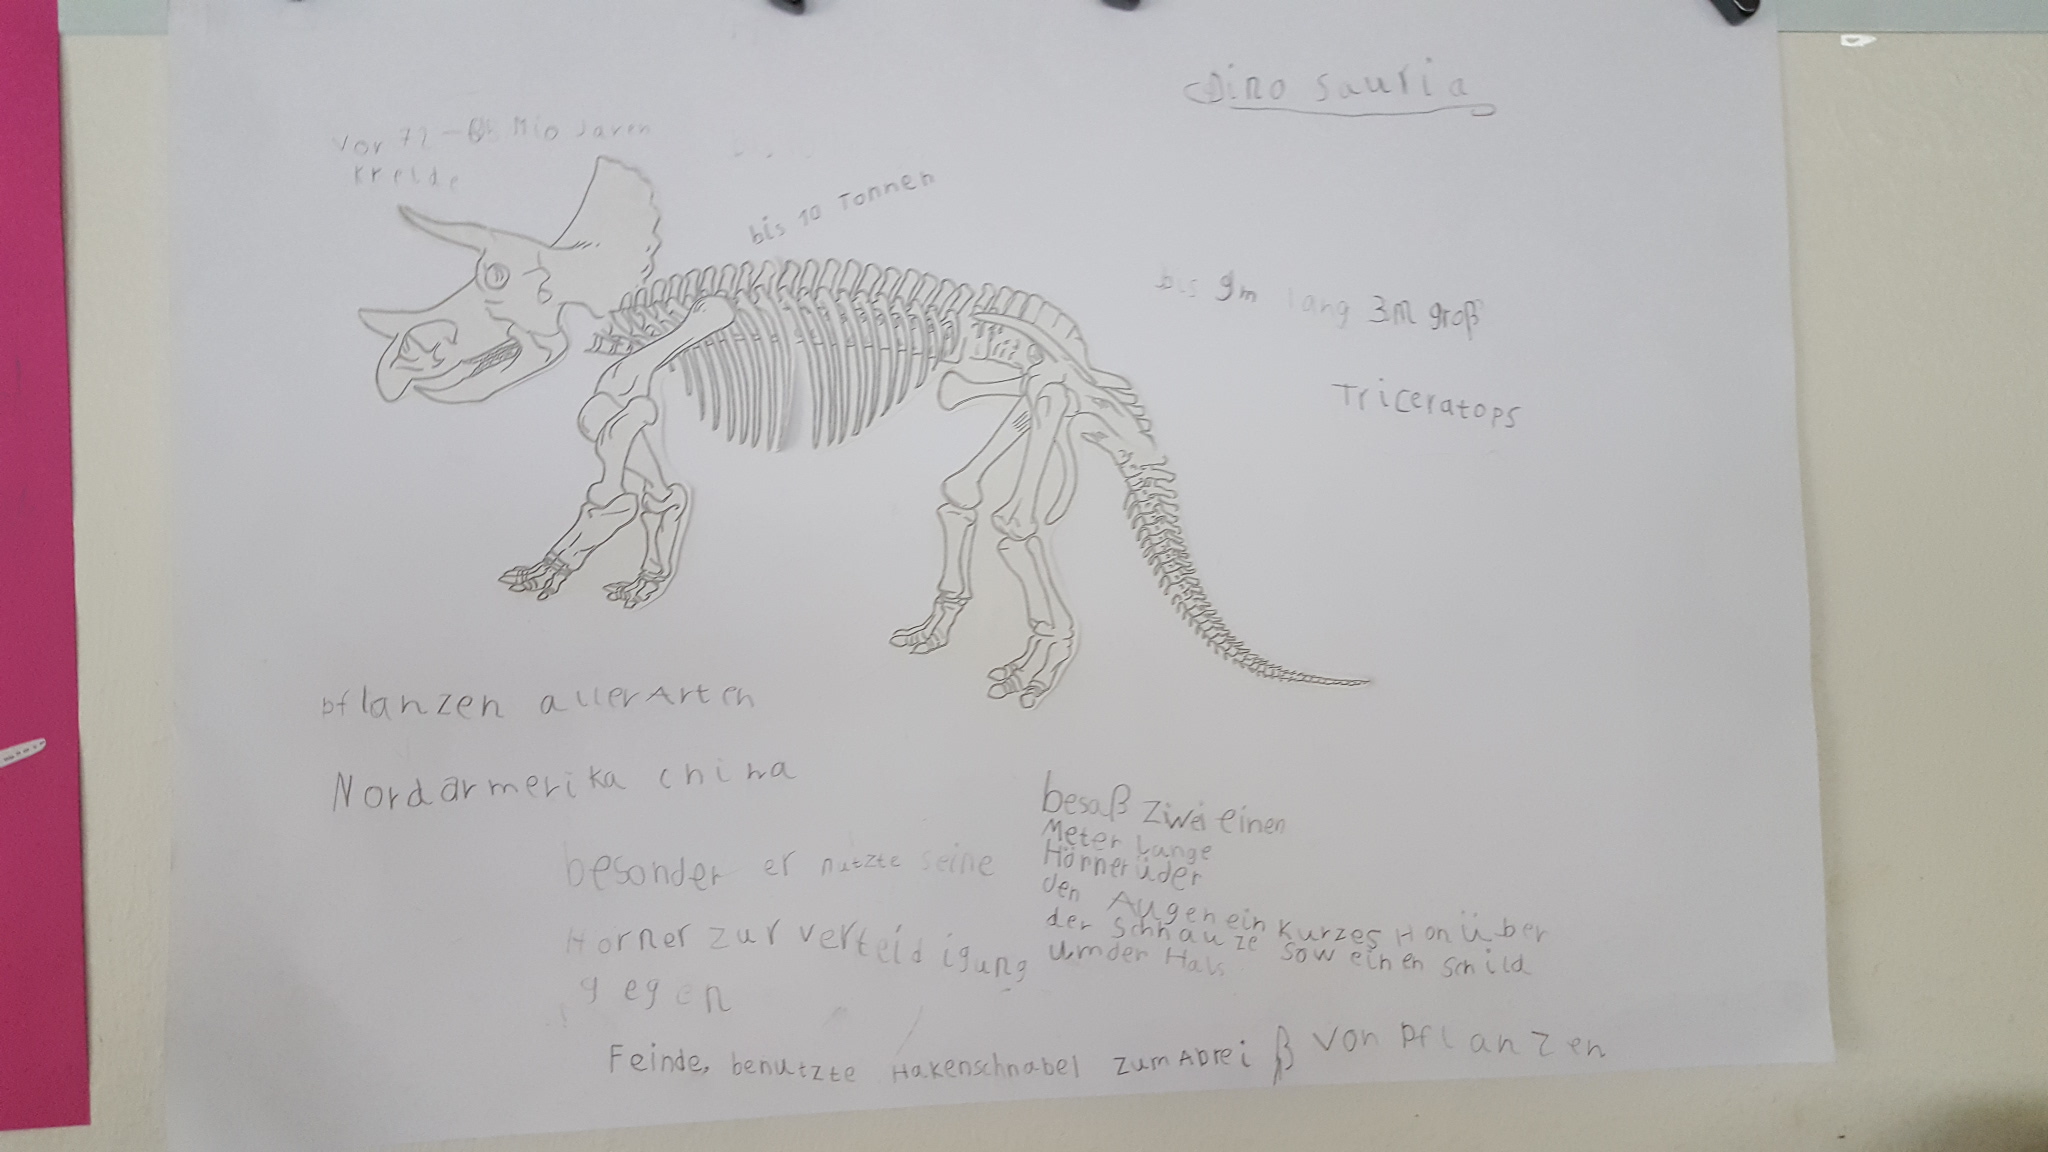 Dino sauria
vor 72 - 66 Mio Jaren
Kreide
bis 10 Tonnen
bis 9m lang 3m groß
Triceratops
pflanzen aller Arten
Nordarmerika china
besonder er nutzte seine
Horner zur verteidigung
gegen
besaß Zwei einen
Meter Lange
Hörner üder
den Augen ein Kurzes Hon über
der Schnauze sow einen schild
um der Hals
Feinde, benutzte Hakenschnabel zum Abreiß von Pflanzen